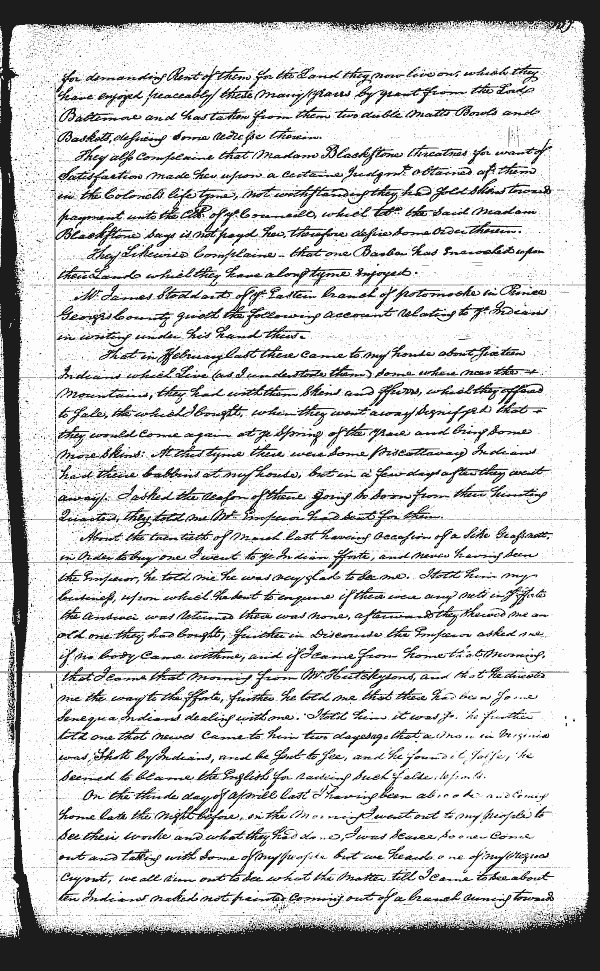 for demanding Rent of them for the Land they now live on, which they
have enjoyed peaceably these many years by grant from the Lord
Baltemore and has taken from them two duble Matts Bowls and
Baskets, desireing some releife therein.
They also Complaine that Madam Blackstone threatnes for want of
Satisfaction made her upon a certaine Judgmt. obtained agt. them
in the Colonels life tyme, not withstanding they had sold skins toward
payment unto the of ye Councill, which the said Madam
Blackstone says is not payd her, therefore desire some order therein.
They Likewise Complaine that one Barber has Encroched upon
their Land which they have a long tyme enjoyed.
Mr. James Stoddart of ye Eastern branch of potomocke in Prince
Georges County giveth the following account relating to ye Indians
in writing under his hand thus.
That in ffebruary last there came to my house about sixteen
Indians which Live (as I understood them) some where near the
Mountains, they had with them Skins and ffurrs, which they offered
to Sale, the which I bought, when they went away signifyed that
they would come again at ye Spring of the yeare and bring some
more skins: At this tyme there were some Piscattaway Indians
had their cabbins at my house, but in a few days after they went
away. I asked the reason of their going so soon from their hunting
Quarter, they told me Mr. Emperor had sent for them.
About the twentieth of March last having occasion of a
in Order to buy one I went to ye Indian fforte, and never having seen
the Emperor, he told me he was very glad to see me. I told him my
business, upon which he sent to enquire if there were any nets in ye fforte
the answer was returned there was none, afterward they shewed me an
old one they had bought, further in Discourse the Emperor asked me
if no body came with me, and if I came from home that Morning,
that I came that morning from Mr. Hutchysons, and that he directed
me the way to the fforte, further he told me that there had been some
Senequa Indians dealing with me. I told him it was so. he further
told one that newes came to him two dayes ago that a man in Virginia
was Shott by Indians, and he sent to see, and he found it false, he
seemed to blame the English for raiseing such false reports.
On the thirde day of Aprill last I having been abroode and coming
home late the Night before, in the morning I went out to my people to
see their worke and what they had done, I was scarce sooner come
out and talking with some of my people but we heard one of my negroes
cry out, we all run out to see what the Matter till I came to see about
ten Indians naked not painted coming out of a branch runing toward